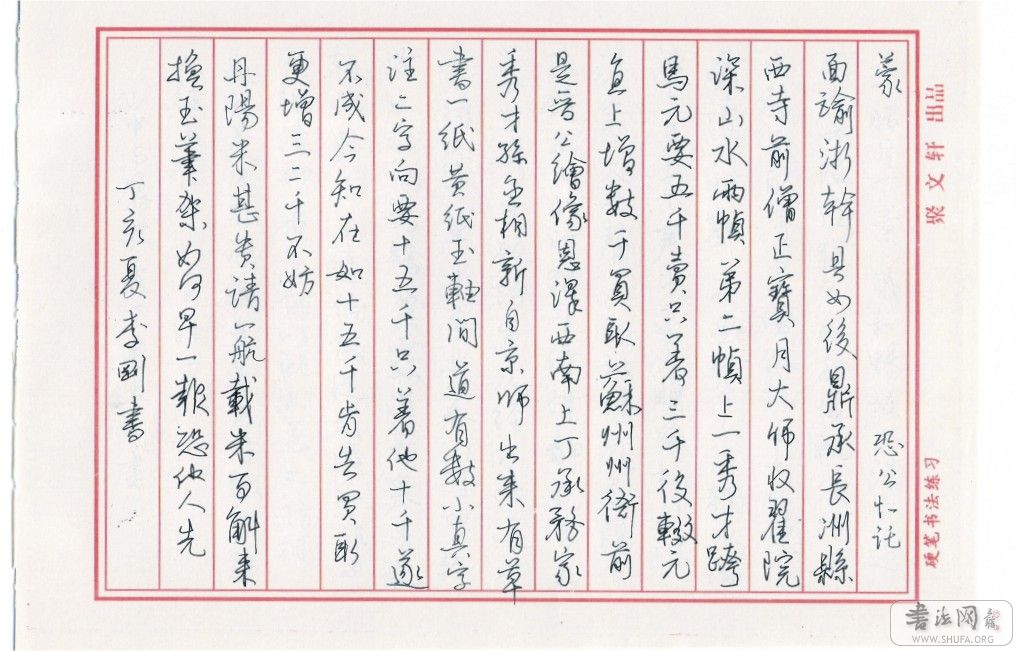 蒙 恐公忙託
面諭浙幹具如後鼎承長洲縣
西寺前僧正寶月大师收翟院
深山水兩幀第二幀上一秀才跨
馬元要五千賣只著三千後轍元
直上增數千買取蘇州州衙前
是晉公繪像恩澤西南上丁承務家
秀才孫丞相新自京师出來有草
書一紙黄紙玉軸間道有數小真字
注之寫向要十五千只着他十千遂
不成今知在如十五千肯告買取
更增三二千不妨
丹陽米甚贵請一航載米百斛来
換玉筆架如何早一報恐他人先
丁亥夏李剛書
聚文轩 出品
硬笔书法练习
書法网
WWW.SHUFA.ORG